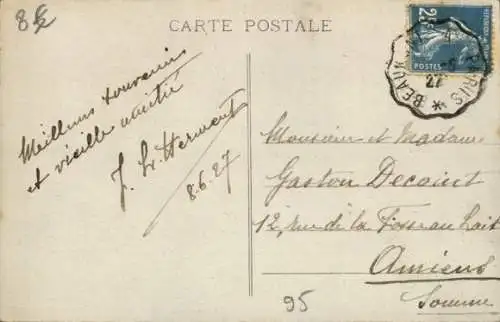 8€
CARTE POSTALE
25
POSTES
BEAUM
PARIS
27
Meilleurs souvenirs
et vieille amitié
J. L'Hermont
8.6.27
Monsieur et Madame
Gaston Decoint
12, rue de la Fosse au Lait
Amiens
Somme
95